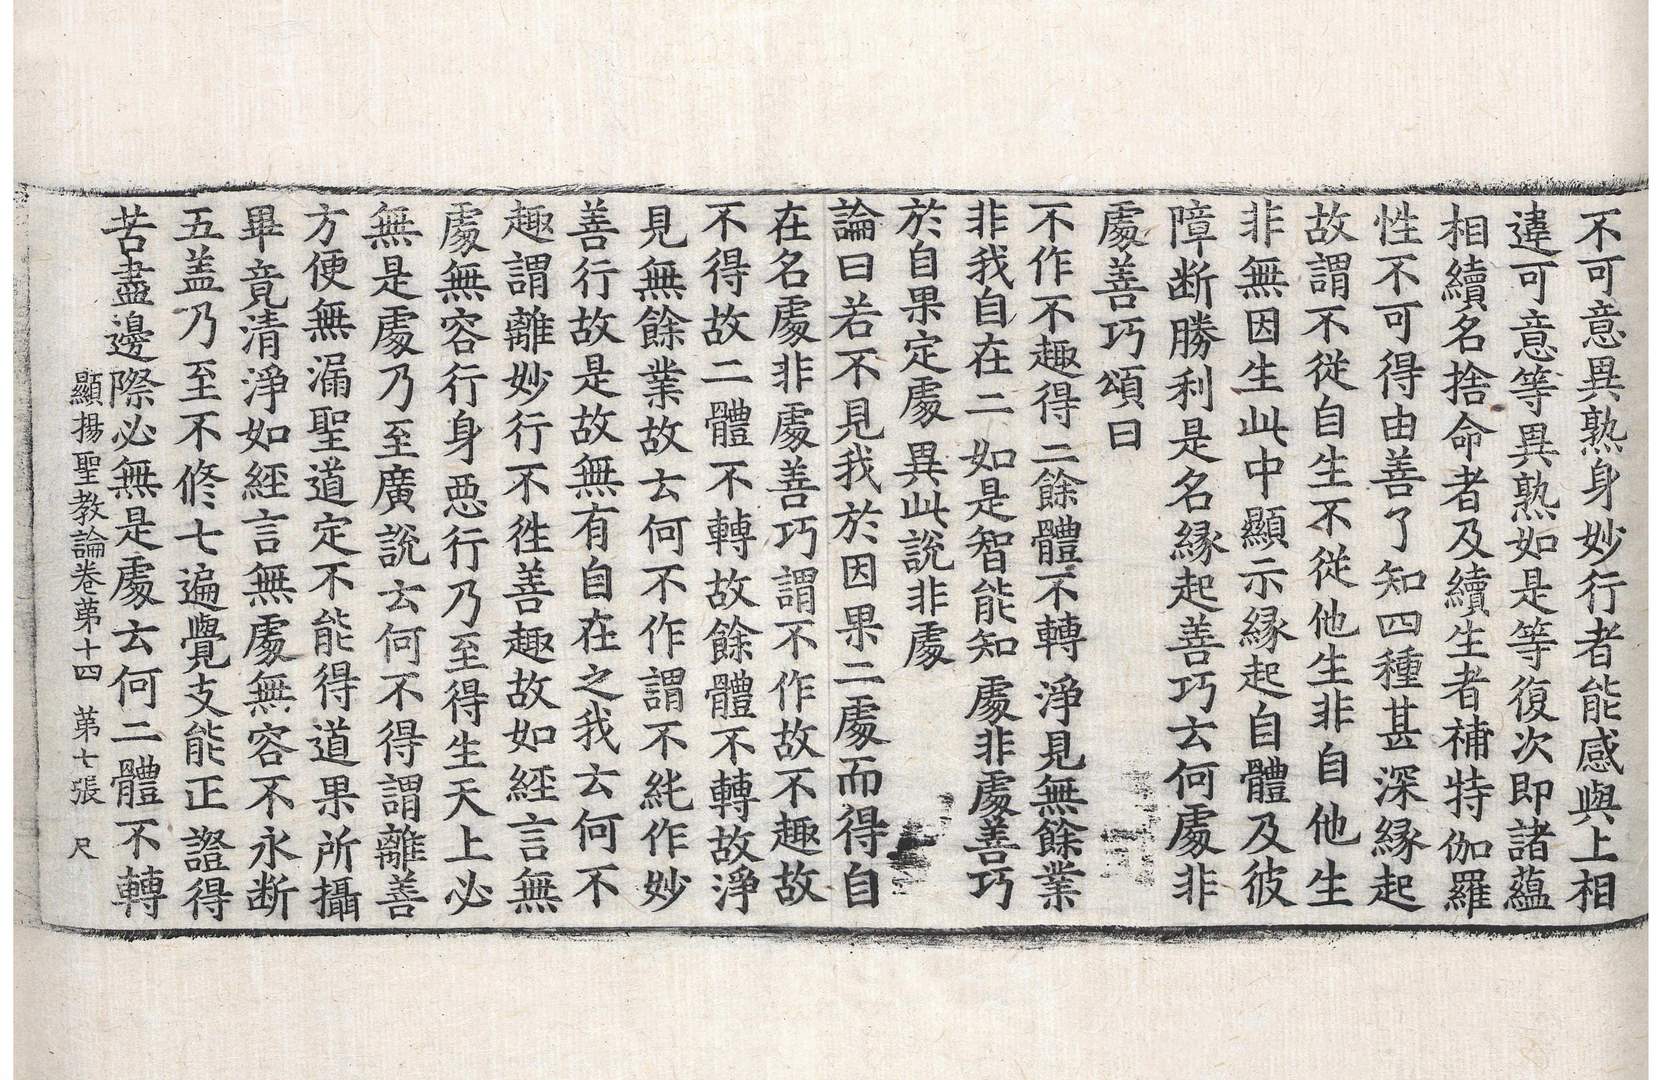 不可意異熟身妙行者能感與上相
違可意等異熟如是等復次即諸蘊
相續名捨命者及續生者補特伽羅
性不可得由善了知四種甚深縁起
故謂不從自生不從他生非自他生
非無因生此中顯示縁起自體及彼
障断勝利是名縁起善巧云何處非
處善巧頌曰
不作不趣得二餘體不轉 淨見無餘業
非我自在二 如是智能知 處非處善巧
於自果定處 異此說非處
論曰若不見我於因果二處而得自
在名處非處善巧謂不作故不趣故
不得故二體不轉故餘體不轉故淨
見無餘業故云何不作謂不純作妙
善行故是故無有自在之我云何不
趣謂離妙行不徃善趣故如經言無
處無容行身惡行乃至得生天上必
無是處乃至廣說云何不得謂離善
方便無漏聖道定不能得道果所攝
畢竟清淨如經言無處無容不永断
五盖乃至不修七遍覺支能正證得
苦盡邊際必無是處云何二體不轉
顯揚聖教論卷苐十四 第七張 尺